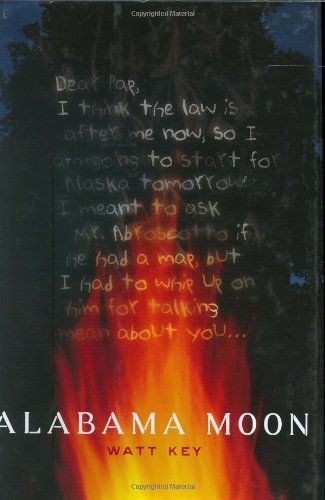 Dear Pap,
I think the law is
after me now, so I
am going to start for
Alaska tomorrow.
I meant to ask
Mr. Abroscotto if
he had a map, but
I had to whip up on
him for talking
mean about you...
ALABAMA MOON
WATT KEY